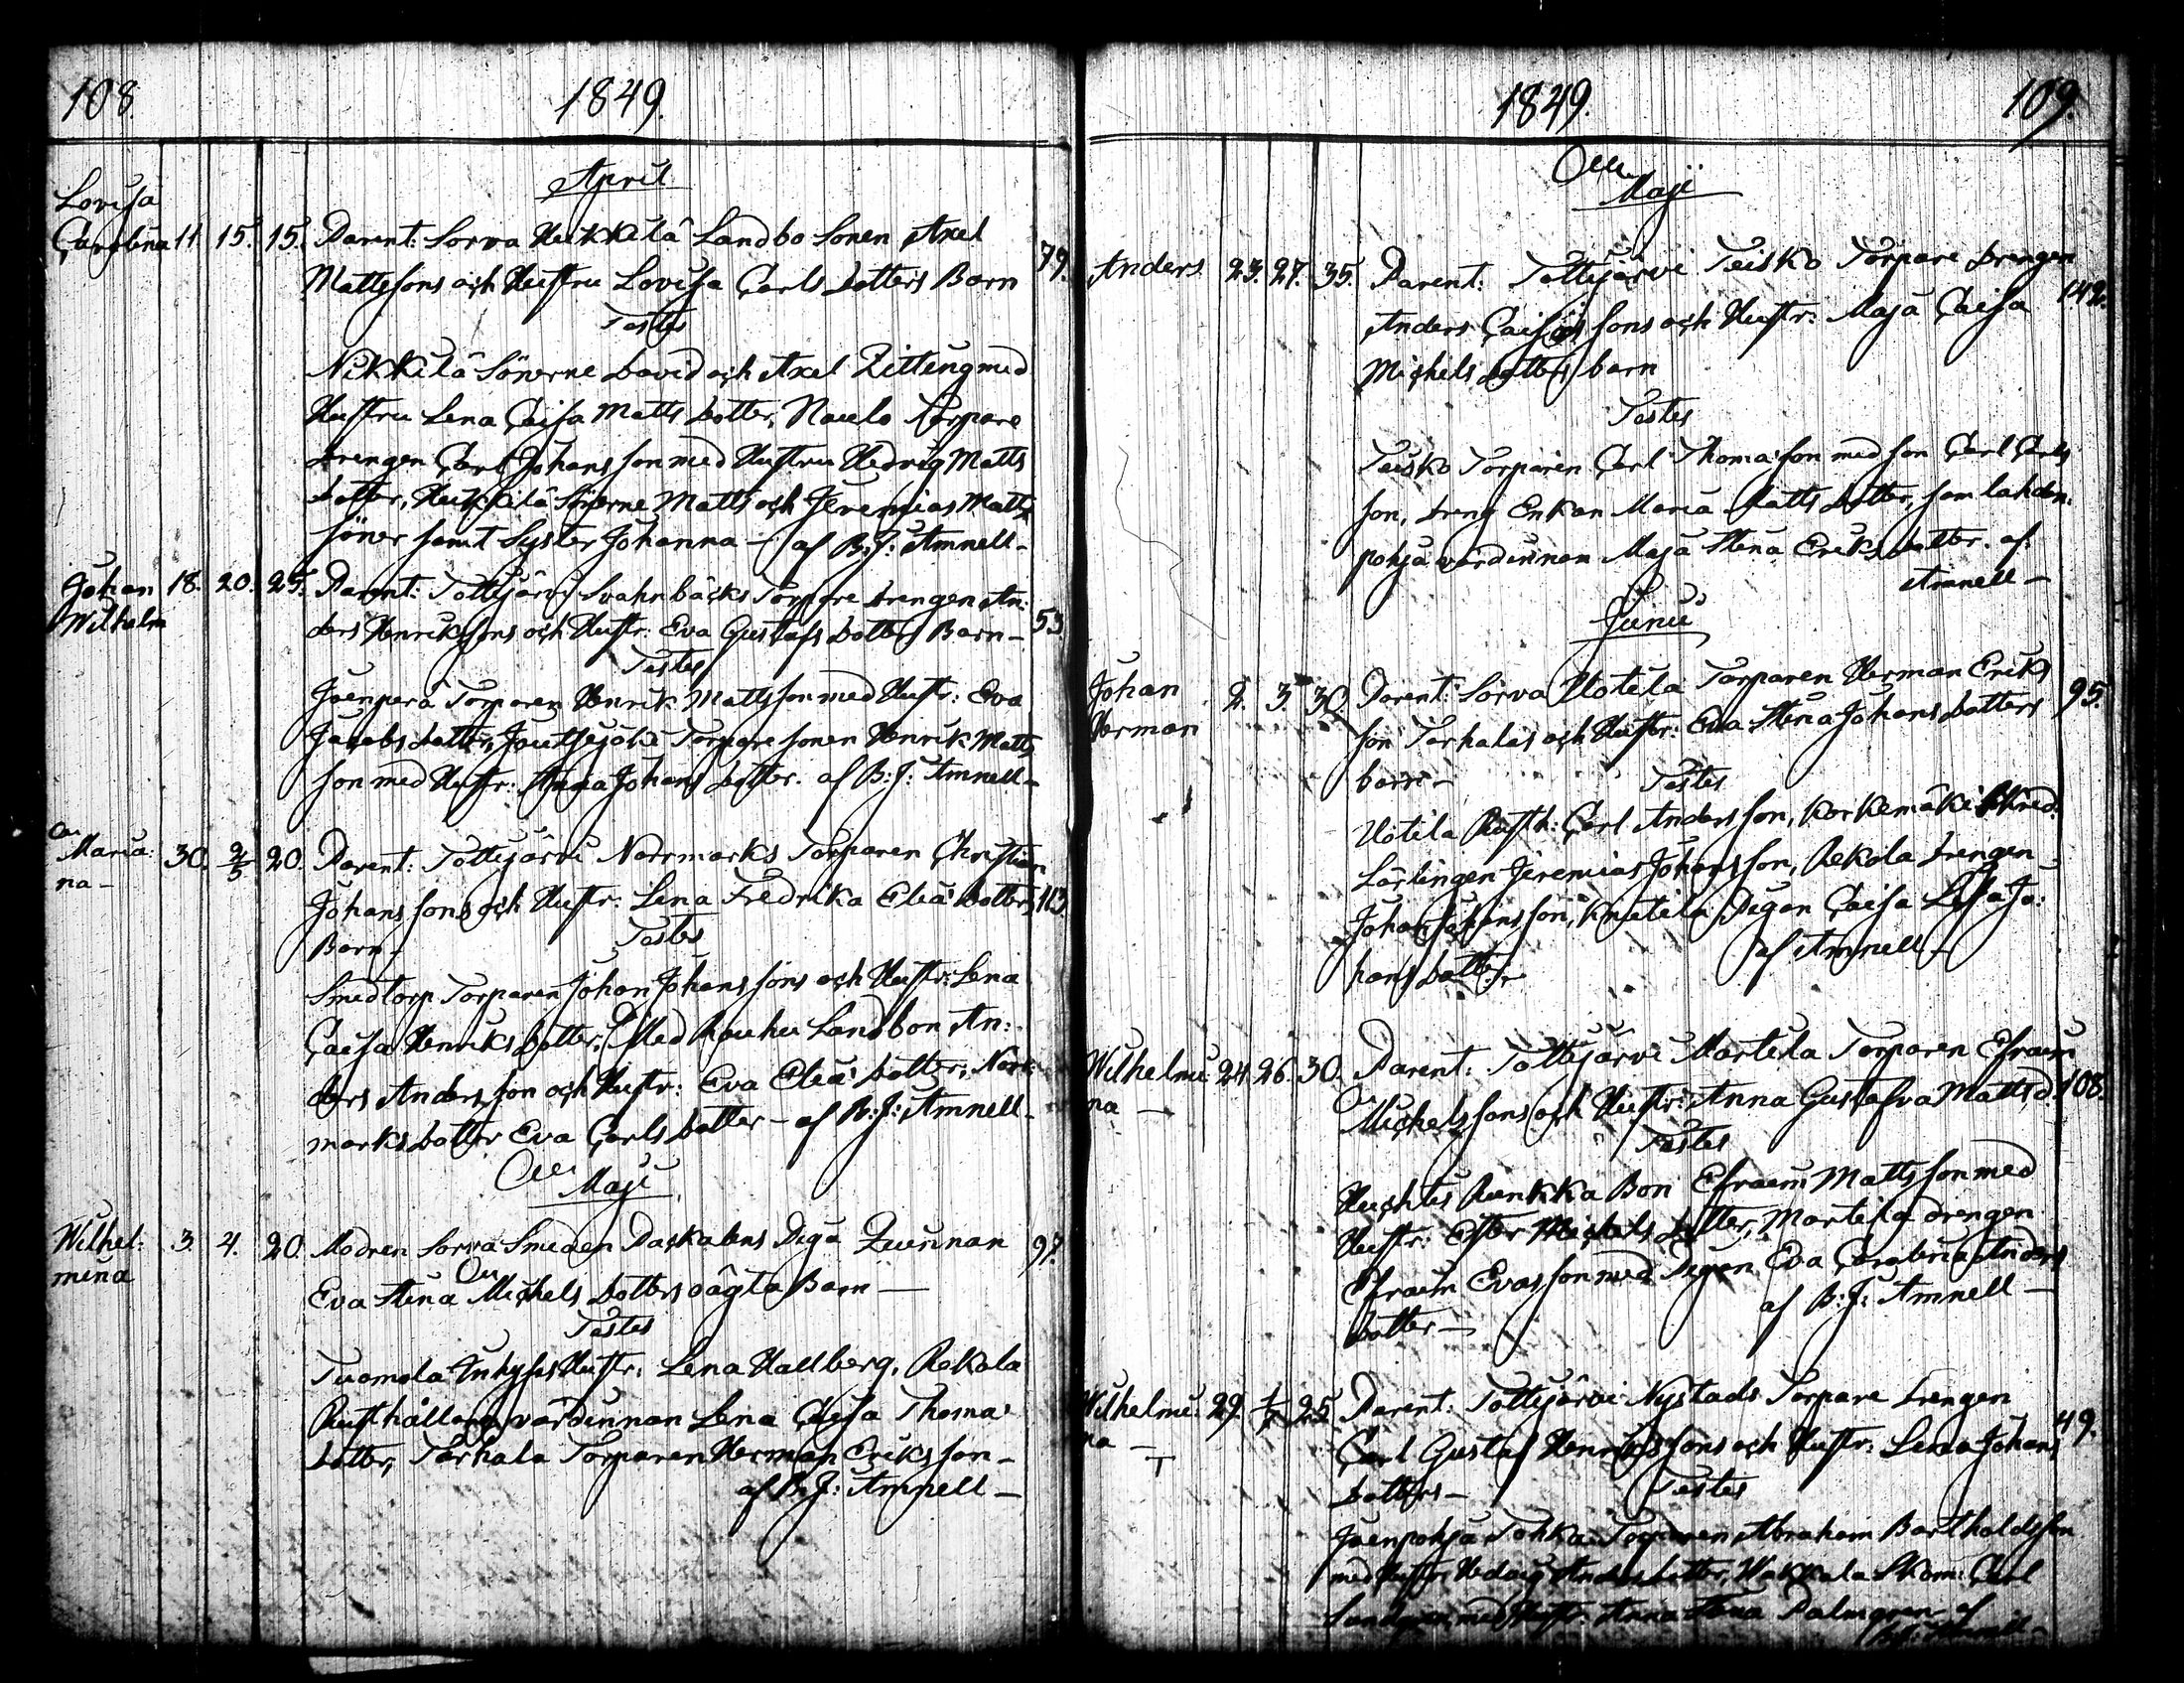 108.
1849.
April
Lovisa
Carolina 11. 15. 15. Parent: Sorva Heikkilä Landbo Sonen Axel 79.
Mattssons och Hustru Lovisa Carls dotters Barn
Testes
Nikkilä Sönerne David och Axel Zitting med
Hustru Lena Caisa Matts dotter, Naulo Torpare
drengen Carl Johansson med Hustru Hedvig Matts
dotter, Heikkilä Sönerne Matts och Jeremias Matts
söner samt Syster Johanna – af B: J: Amnell –
Johan 18. 20. 25. Parent: Tottijärvi Svahnbäcks Torpare drengen An:
Wilhelm
ders Henrikssons och Hustr: Eva Gustafs dotters Barn – 53
Testes
Joenperä Torparen Henrik Mattsson med Hustr: Eva
Jacobs dotter, Torpare sonen Henrik Matts
son med Hustr: Johans dotter. af B: J: Amnell –
Maria: 30. 2/5 20. Parent: Tottijärvi Norrmarks Torparen Christian
na –
Johans sons och Hustr: Lena Fredrika Eliæ dotters 113
Barn – Testes
Smedtorp Torparen Johan Johans sons och Hustr: Lena
Caisa Henriks dotter, Rauhu Landbon An:
ders Andersson och Hustr: Eva Eliæ dotter, Norr:
marks dotter Eva Carls dotter – af B: J: Amnell –
Maji
Wilhel: 3. 4. 20. Modren Sorva Smeden Daskalens Piga Qvinnan 97.
mina
Eva Stina Michels dotters oägta Barn –
Testes
Tuomola Inhyses Hustr: Lena Hallberg, Rekola
Rusthållare värdinnan Lena Caisa Thomæ
dotter, Tarhala Torparen Herman Eriksson –
af B: J: Amnell –
1849.
109.
Maji
Anders 23. 27. 35. Parent: Tottijärvi Teisko Torpare drengen 142.
Anders sons och Hustr: Maja Caisa
Michels dotters barn
Testes
Teisko Torparen Carl Thomasson med son Carl Carls
son, dreng Enkan Maria Matts dotter, sam lahden:
pohja värdinnan Maja Stina Eriks dotter. af
Amnell –
Junii
Johan 2. 3. 30. Parent: Sorva Uotila Torparen Herman Eriks 95.
Herman
son Tarhalas och Hustr: Eva Stina Johans dotters
barn – Testes
Uotila Rusth: Carl Andersson, Korkemäki Skräd:
Lärlingen Jeremias Johansson, Rekola drengen
Johan Johansson, Knutila Pigan Caisa Lisa Jo:
hans dotter – af Amnell –
Wilhelmi: 24. 26. 30. Parent: Tottijärvi Martila Torparen Efraim 108.
na –
Michelssons och Hustr: Anna Gustafva Matts d.
Testes
Huchtis Runkka Bon Efraim Mattsson med
Hustr: Ester Michels dotter, Martila drengen
Efraim Evasson med Pigan Eva Carolina Anders
dotter – af B: J: Amnell –
Wilhelmi: 29. 1/7 25. Parent: Tottijärvi Nystads Torpare drengen 49.
na –
Carl Gustaf Henrikssons och Hustr: Lena Johans
dotters – Testes
Joenpohja Tohka Torparen Abraham Bartholdsson
med Hustr: Hedvig Anders dotter, Wakkala Skom: Carl
med Hustr: Anna Stina Palmgren af
B: J: Amnell –